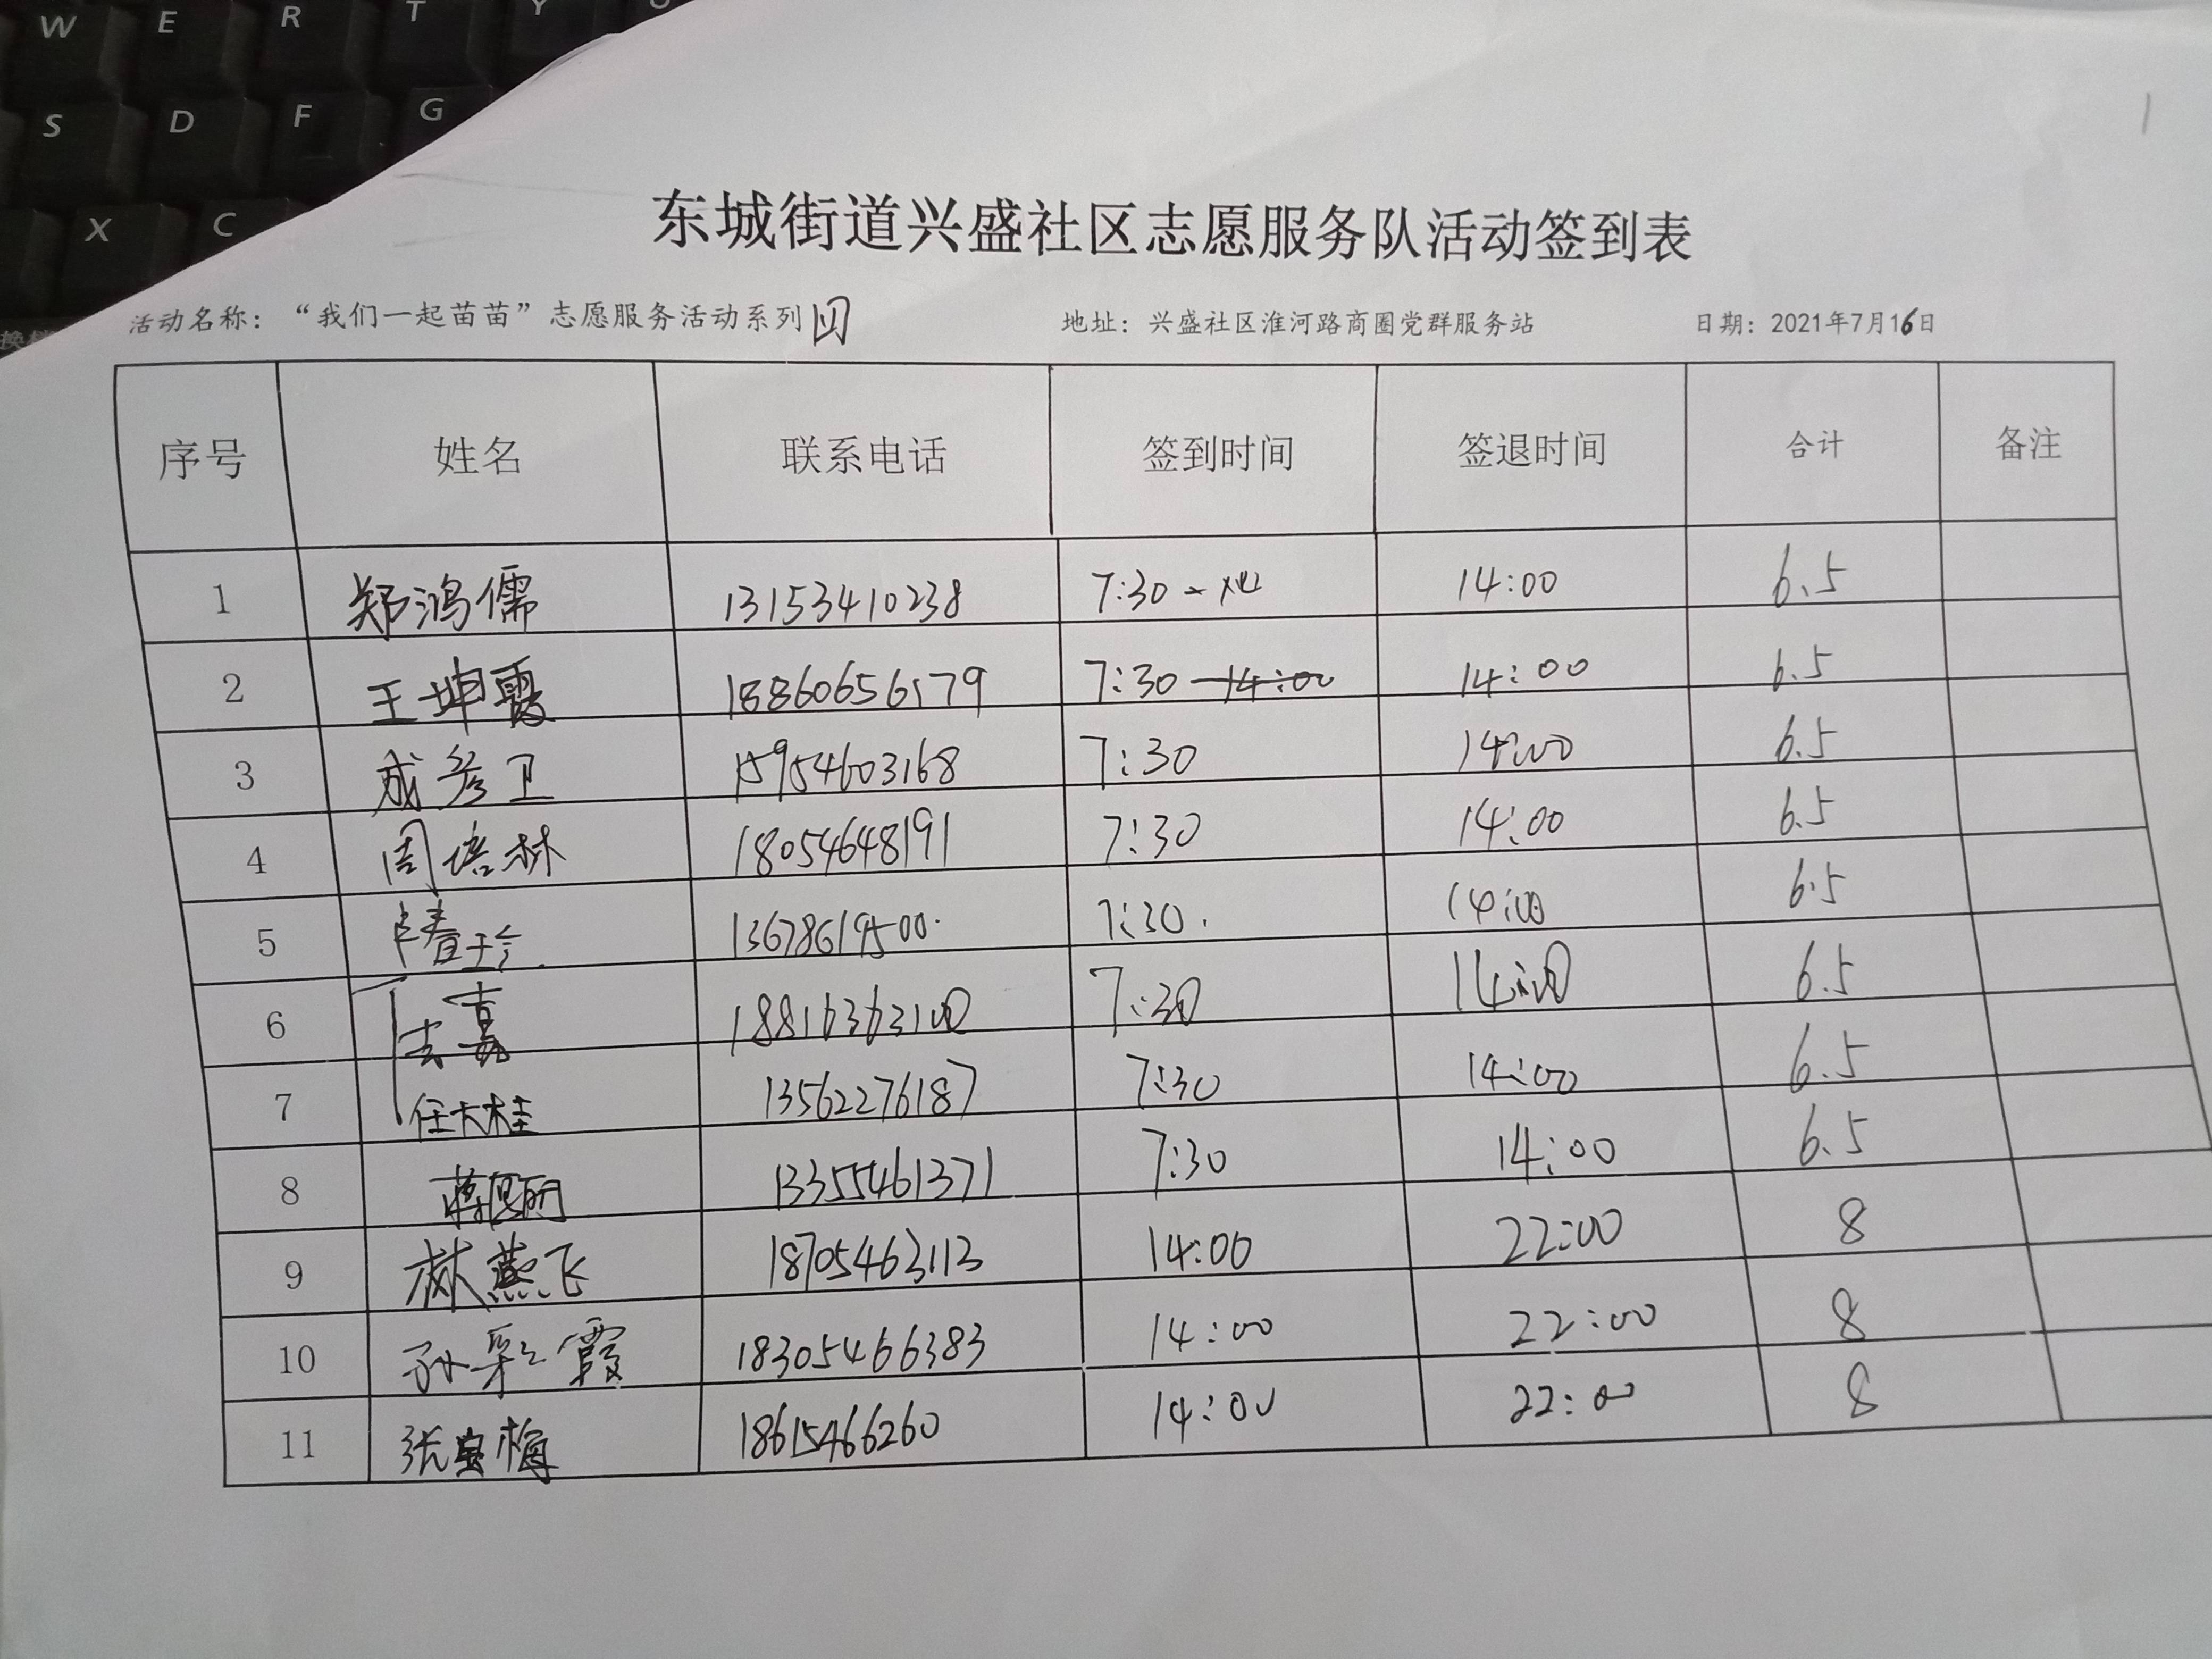 W E R T Y
S D F G
X C
东城街道兴盛社区志愿服务队活动签到表
活动名称：“我们一起苗苗”志愿服务活动系列四 地址：兴盛社区淮河路商圈党群服务站 日期：2021年7月16日
序号 姓名 联系电话 签到时间 签退时间 合计 备注
1 郑鸿儒 13153410238 7:30 14:00 6.5
2 王坤霞 18860656179 7:30 14:00 14:00 6.5
3 成彦卫 15954603168 7:30 14:00 6.5
4 周培林 18054648191 7:30 14:00 6.5
5 13678619500 7:30 14:00 6.5
6 18816363100 7:30 14:00 6.5
7 任大桂 13562276187 7:30 14:00 6.5
8 13355461371 7:30 14:00 6.5
9 林燕飞 18705463113 14:00 22:00 8
10 孙彩霞 18305466383 14:00 22:00 8
11 张宝梅 18615466260 14:00 22:00 8